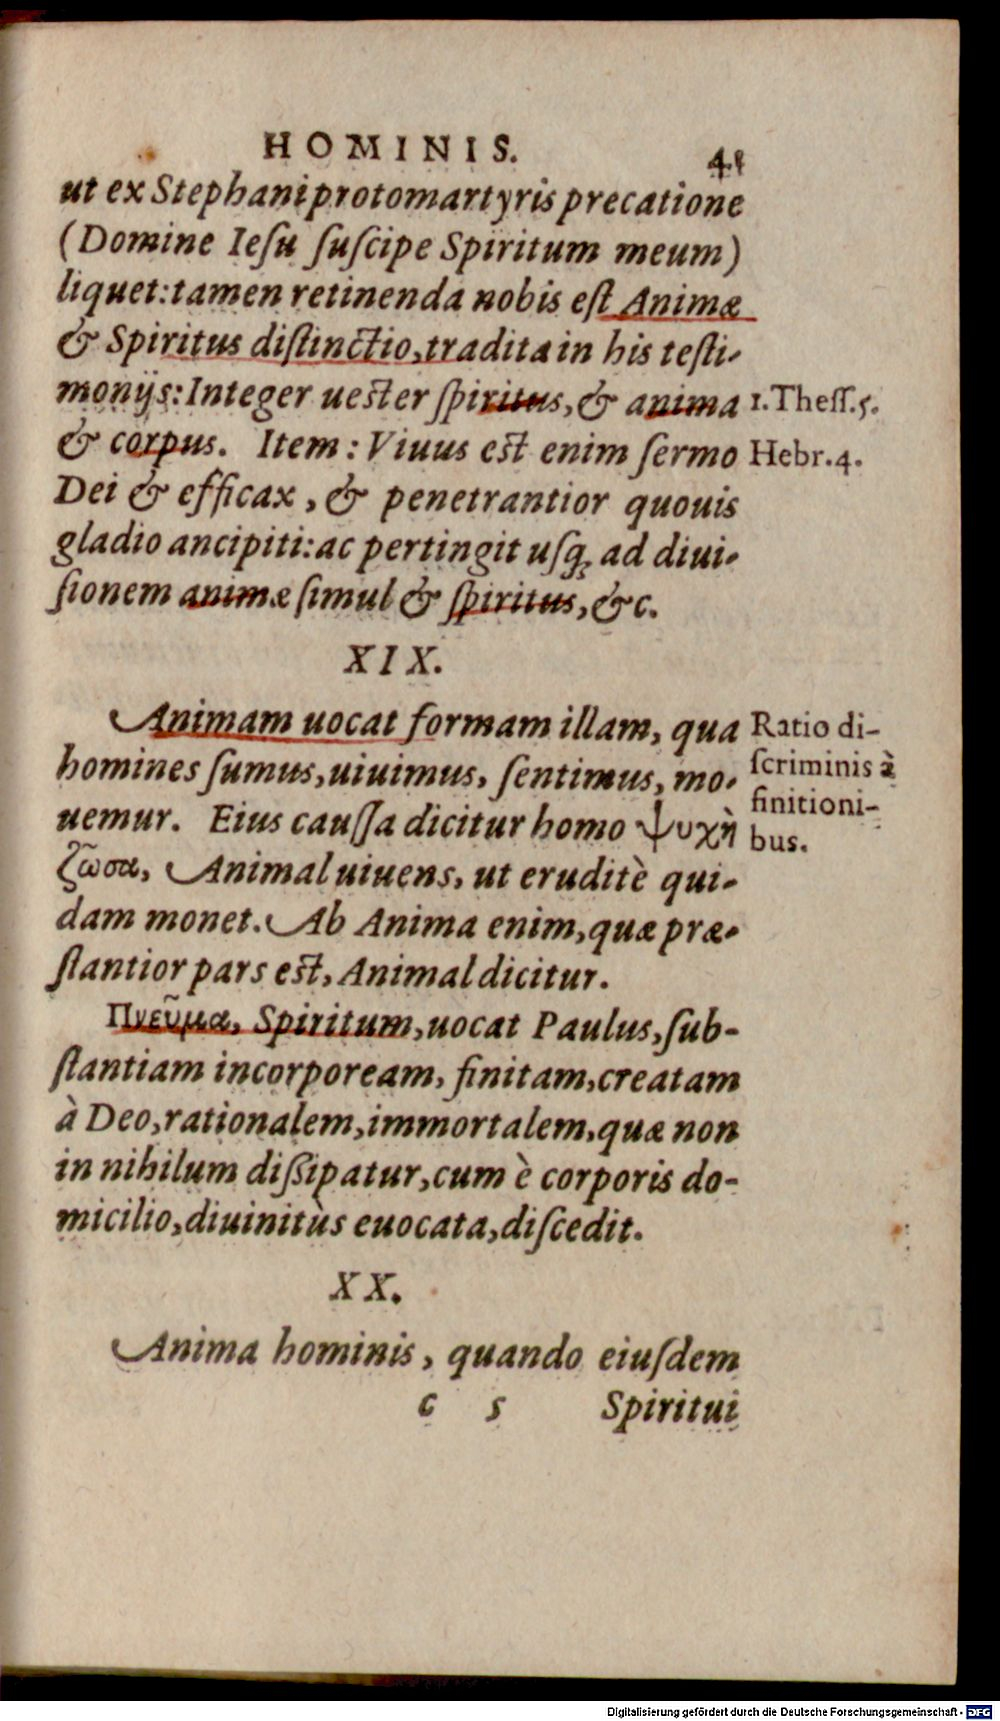 HOMINIS.
41
ut ex Stephani protomartyris precatione
(Domine Iesu suscipe Spiritum meum)
liquet: tamen retinenda nobis est Animæ
& Spiritus distinctio, tradita in his testi-
monijs: Integer uester spiritus, & anima
1. Thess. 5.
& corpus. Item: Viuus est enim sermo
Hebr. 4.
Dei & efficax, & penetrantior quouis
gladio ancipiti: ac pertingit usq; ad diui-
sionem animæ simul & spiritus, &c.
XIX.
Animam uocat formam illam, qua
Ratio di-
homines sumus, uiuimus, sentimus, mo-
scriminis à
uemur. Eius caussa dicitur homo ψυχὴ
finitioni-
bus.
ζῶσα, Animal uiuens, ut eruditè qui-
dam monet. Ab Anima enim, quæ præ-
stantior pars est, Animal dicitur.
Πνεῦμα, Spiritum, uocat Paulus, sub-
stantiam incorpoream, finitam, creatam
à Deo, rationalem, immortalem, quæ non
in nihilum dissipatur, cum è corporis do-
micilio, diuinitùs euocata, discedit.
XX.
Anima hominis, quando eiusdem
c 5 Spiritui
Digitalisierung gefördert durch die Deutsche Forschungsgemeinschaft - DFG